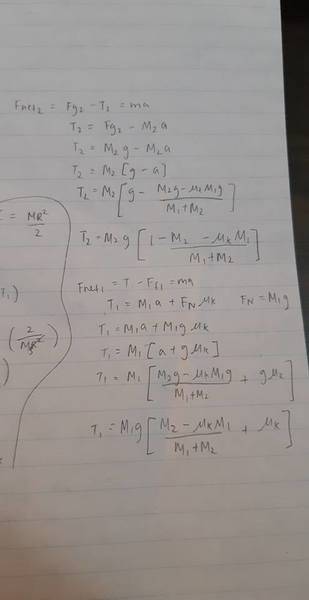 Fnet₂ = Fg₂ - T₂ = ma
T₂ = Fg₂ - M₂a
T₂ = M₂g - M₂a
T₂ = M₂[g - a]
T₂ = M₂[g - (M₂g - μₖM₁g)/(M₁+M₂)]
T₂ = M₂g[(1 - M₂ - μₖM₁)/(M₁+M₂)]
Fnet₁ = T - Ff₁ = ma
T₁ = M₁a + F_N μₖ F_N = M₁g
T₁ = M₁a + M₁g μₖ
T₁ = M₁[a + gμₖ]
T₁ = M₁[(M₂g - μₖM₁g)/(M₁+M₂) + gμₖ]
T₁ = M₁g[(M₂ - μₖM₁)/(M₁+M₂) + μₖ]
= MR²/2
T₁)